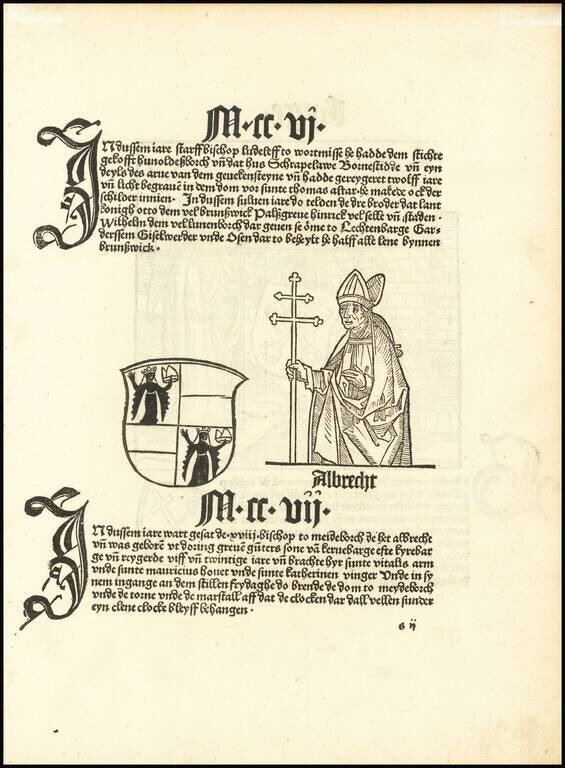 M·cc·vj·
IN dussem iare starff bischop ludeleff to wortmisse he hadde dem stichte
gekofft hunoldeßborch vñ dat hus Schrapelawe Bornestidde vñ eyn
deyls des arue van dem geuekensteyne vñ hadde gereygeret twolff iare
vñ licht begrauē in dem dom vor sunte thomas altar· he makede ock der
schilder innien· In dussem suluen iare do telden de dre broder dat lant
konigh otto dem vel brunßwick Palßgreue hinrick vel selle vñ staden·
Wilhelm dem vel lunenborch dar geuen se ome to Lechtenbarge Gar-
derssem Giselwerder vnde Osen dar to beheylt he halff alle lene bynnen
brunßwick·
Albrecht
M·cc·vij·
IN dussem iare wart gesat de·xviij·bischop to meideborch de het albrecht
vñ was geborē vt doring greuē gūters sone vā keruebarge efte kyrebar
ge vñ reygerde viff vñ twintige iare vñ brachte hyr sunte vitalis arm
vnde sunte mauricius houet vnde sunte katherinen vinger Vnde in sy
nem ingange an dem stillen frydaghe do brende de dom to meydeborch
vnde de torne vnde de marstall aff dat de clocken dar dall vellen sunder
eyn clene clocke bleyff behangen·
s ij